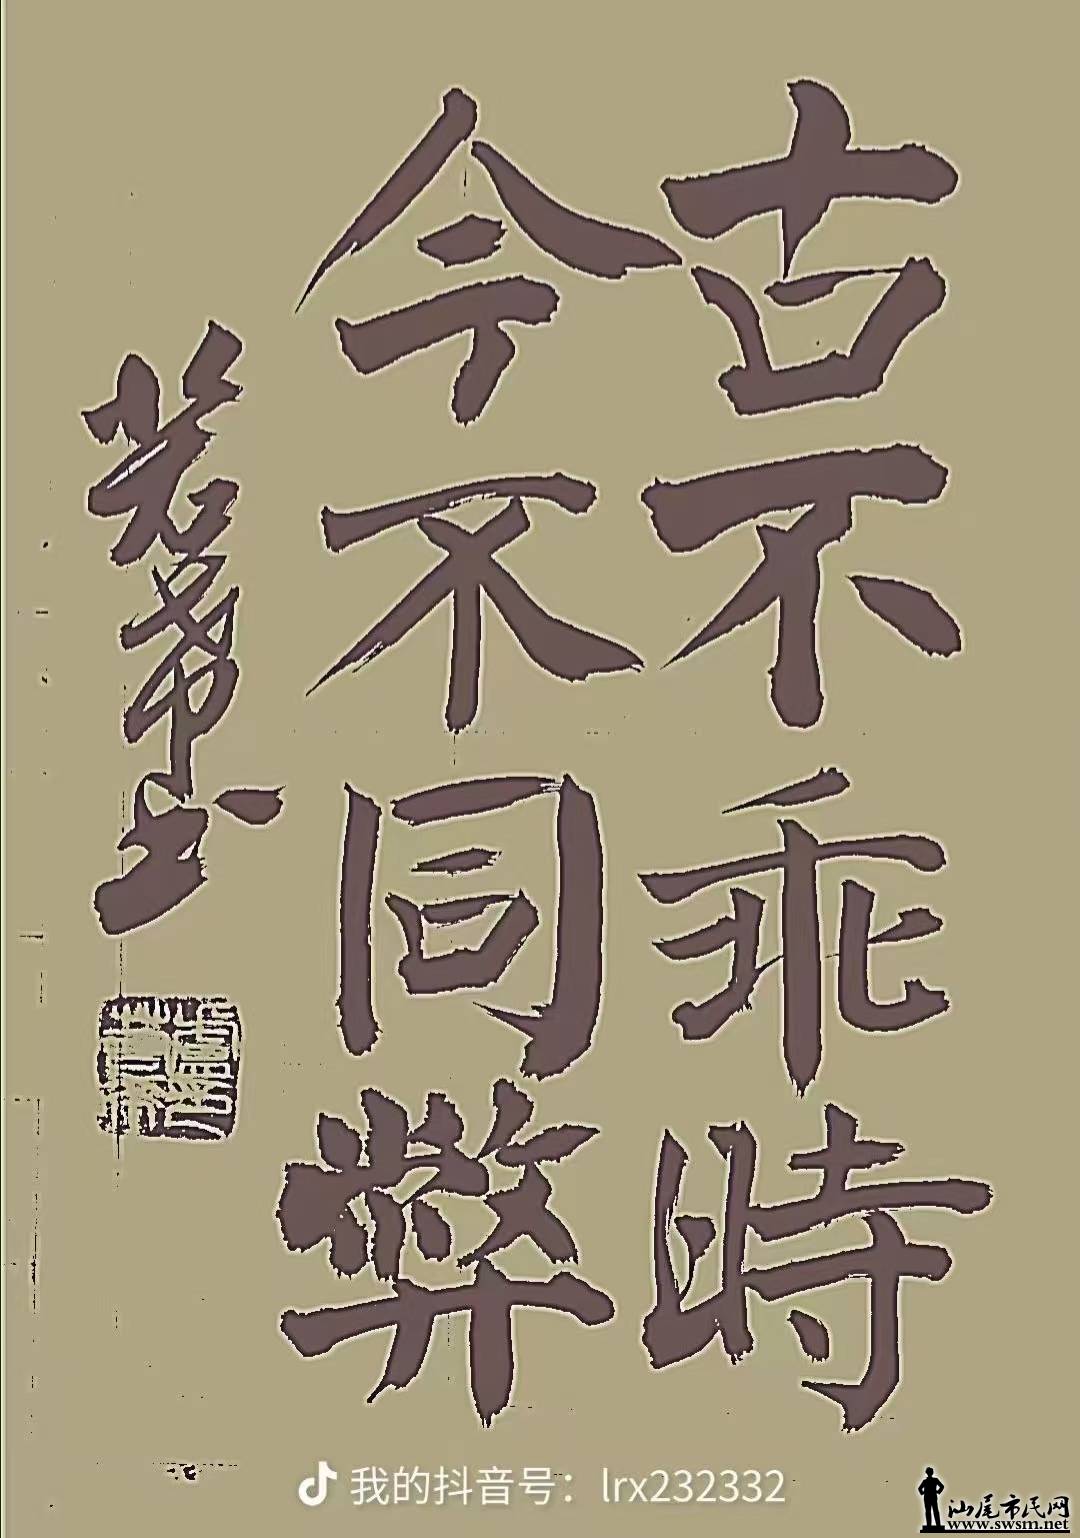 古不乖時
今不同弊
若希書
我的抖音号：lrx232332
汕尾市民网
www.swsm.net